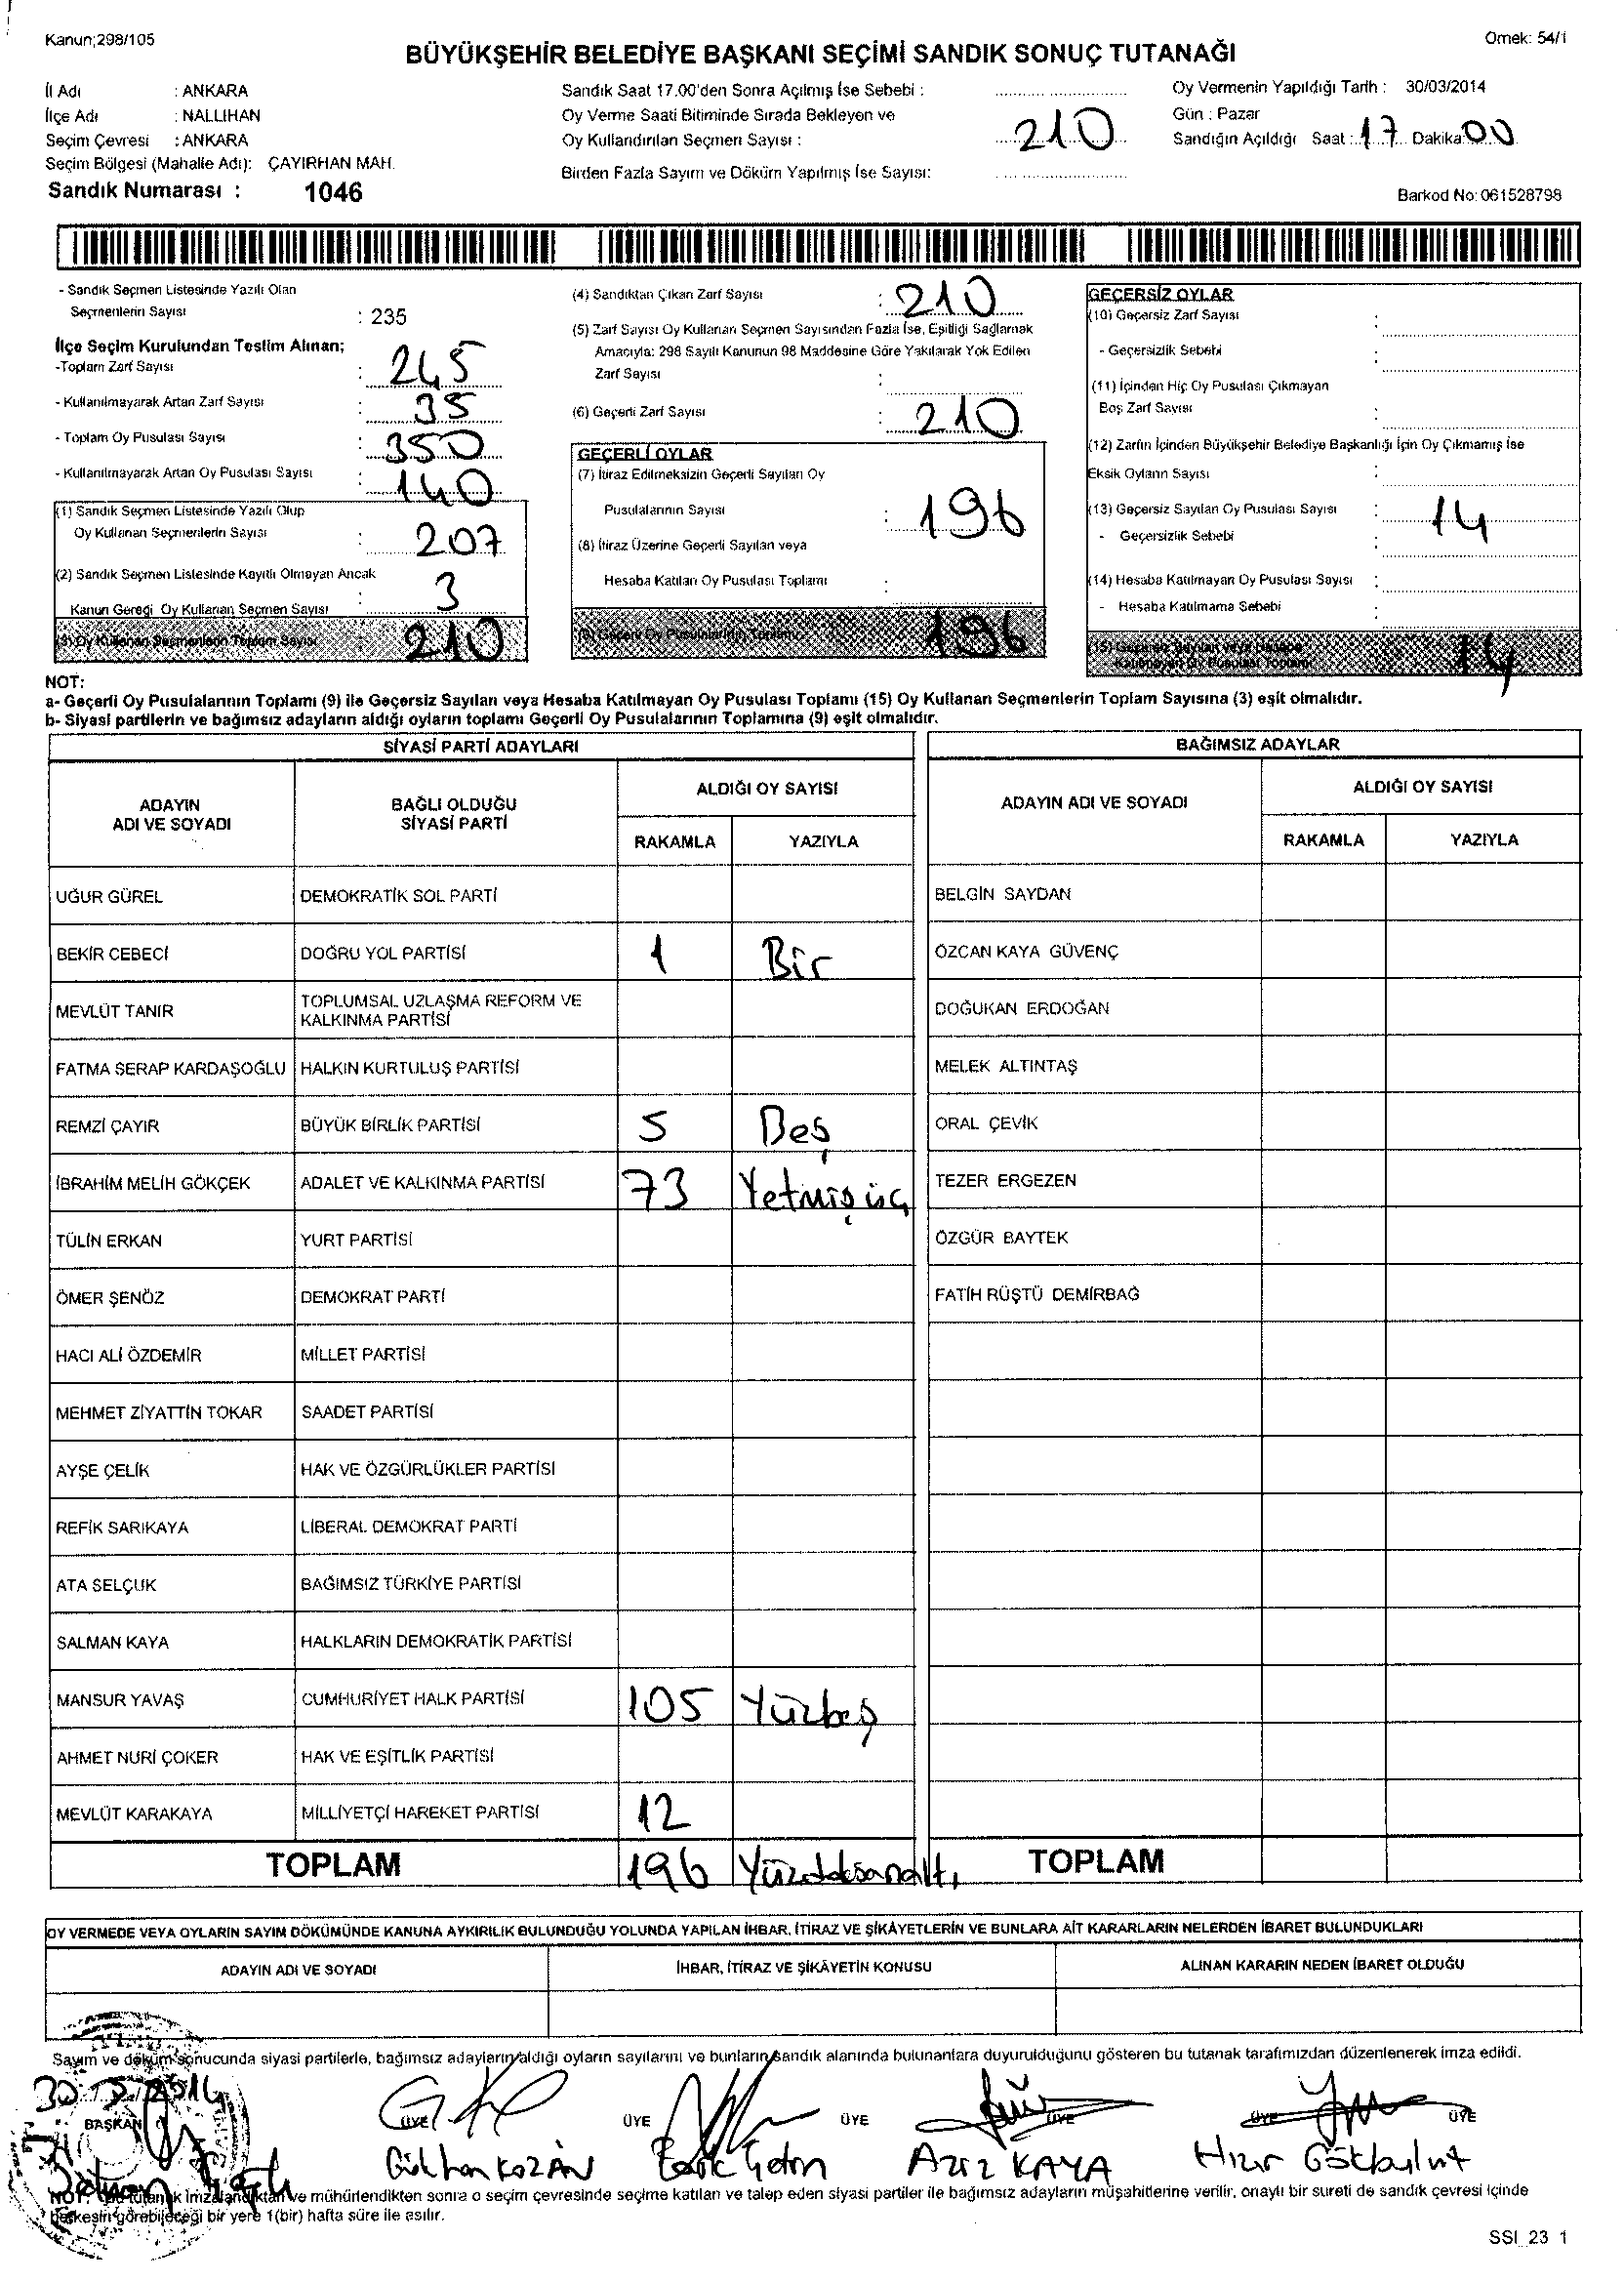 Kanun;298/105
Örnek: 54/1
BÜYÜKŞEHİR BELEDİYE BAŞKANI SEÇİMİ SANDIK SONUÇ TUTANAĞI
İl Adı : ANKARA
İlçe Adı : NALLIHAN
Seçim Çevresi : ANKARA
Seçim Bölgesi (Mahalle Adı): ÇAYIRHAN MAH.
Sandık Numarası : 1046
Sandık Saat 17.00'den Sonra Açılmış İse Sebebi :
Oy Verme Saati Bitiminde Sırada Bekleyen ve
Oy Kullandırılan Seçmen Sayısı : 210
Birden Fazla Sayım ve Döküm Yapılmış İse Sayısı:
Oy Vermenin Yapıldığı Tarih : 30/03/2014
Gün : Pazar
Sandığın Açıldığı Saat : 17 Dakika 00
Barkod No: 061528798
- Sandık Seçmen Listesinde Yazılı Olan
Seçmenlerin Sayısı : 235
İlçe Seçim Kurulundan Teslim Alınan;
-Toplam Zarf Sayısı : 245
- Kullanılmayarak Artan Zarf Sayısı : 35
- Toplam Oy Pusulası Sayısı : 350
- Kullanılmayarak Artan Oy Pusulası Sayısı : 140
(1) Sandık Seçmen Listesinde Yazılı Olup
Oy Kullanan Seçmenlerin Sayısı : 207
(2) Sandık Seçmen Listesinde Kayıtlı Olmayan Ancak
Kanun Gereği Oy Kullanan Seçmen Sayısı : 3
(3) Oy Kullanan Seçmenlerin Toplam Sayısı 210
(4) Sandıktan Çıkan Zarf Sayısı : 210
(5) Zarf Sayısı Oy Kullanan Seçmen Sayısından Fazla İse, Eşitliği Sağlamak
Amacıyla: 298 Sayılı Kanunun 98 Maddesine Göre Yakılarak Yok Edilen
Zarf Sayısı :
(6) Geçerli Zarf Sayısı : 210
GEÇERLİ OYLAR
(7) İtiraz Edilmeksizin Geçerli Sayılan Oy
Pusulalarının Sayısı : 196
(8) İtiraz Üzerine Geçerli Sayılan veya
Hesaba Katılan Oy Pusulası Toplamı :
(9) Geçerli Oy Pusulalarının Toplamı 196
GEÇERSİZ OYLAR
(10) Geçersiz Zarf Sayısı :
- Geçersizlik Sebebi :
(11) İçinden Hiç Oy Pusulası Çıkmayan
Boş Zarf Sayısı :
(12) Zarfın İçinden Büyükşehir Belediye Başkanlığı İçin Oy Çıkmamış İse
Eksik Oyların Sayısı :
(13) Geçersiz Sayılan Oy Pusulası Sayısı : 14
- Geçersizlik Sebebi :
(14) Hesaba Katılmayan Oy Pusulası Sayısı :
- Hesaba Katılmama Sebebi :
(15) Geçersiz Sayılan veya Hesaba
Katılmayan Oy Pusulası Toplamı 14
NOT:
a- Geçerli Oy Pusulalarının Toplamı (9) ile Geçersiz Sayılan veya Hesaba Katılmayan Oy Pusulası Toplamı (15) Oy Kullanan Seçmenlerin Toplam Sayısına (3) eşit olmalıdır.
b- Siyasi partilerin ve bağımsız adayların aldığı oyların toplamı Geçerli Oy Pusulalarının Toplamına (9) eşit olmalıdır.
SİYASİ PARTİ ADAYLARI
BAĞIMSIZ ADAYLAR
ADAYIN
ADI VE SOYADI
BAĞLI OLDUĞU
SİYASİ PARTİ
ALDIĞI OY SAYISI
RAKAMLA YAZIYLA
ADAYIN ADI VE SOYADI
ALDIĞI OY SAYISI
RAKAMLA YAZIYLA
UĞUR GÜREL DEMOKRATİK SOL PARTİ BELGİN SAYDAN
BEKİR CEBECİ DOĞRU YOL PARTİSİ 1 Bir ÖZCAN KAYA GÜVENÇ
MEVLÜT TANIR TOPLUMSAL UZLAŞMA REFORM VE
KALKINMA PARTİSİ DOĞUKAN ERDOĞAN
FATMA SERAP KARDAŞOĞLU HALKIN KURTULUŞ PARTİSİ MELEK ALTINTAŞ
REMZİ ÇAYIR BÜYÜK BİRLİK PARTİSİ 5 Beş ORAL ÇEVİK
İBRAHİM MELİH GÖKÇEK ADALET VE KALKINMA PARTİSİ 73 Yetmiş üç TEZER ERGEZEN
TÜLİN ERKAN YURT PARTİSİ ÖZGÜR BAYTEK
ÖMER ŞENÖZ DEMOKRAT PARTİ FATİH RÜŞTÜ DEMİRBAĞ
HACI ALİ ÖZDEMİR MİLLET PARTİSİ
MEHMET ZİYATTİN TOKAR SAADET PARTİSİ
AYŞE ÇELİK HAK VE ÖZGÜRLÜKLER PARTİSİ
REFİK SARIKAYA LİBERAL DEMOKRAT PARTİ
ATA SELÇUK BAĞIMSIZ TÜRKİYE PARTİSİ
SALMAN KAYA HALKLARIN DEMOKRATİK PARTİSİ
MANSUR YAVAŞ CUMHURİYET HALK PARTİSİ 105 Yüzbeş
AHMET NURİ ÇOKER HAK VE EŞİTLİK PARTİSİ
MEVLÜT KARAKAYA MİLLİYETÇİ HAREKET PARTİSİ 12
TOPLAM 196 Yüzdoksanaltı TOPLAM
OY VERMEDE VEYA OYLARIN SAYIM DÖKÜMÜNDE KANUNA AYKIRILIK BULUNDUĞU YOLUNDA YAPILAN İHBAR, İTİRAZ VE ŞİKÂYETLERİN VE BUNLARA AİT KARARLARIN NELERDEN İBARET BULUNDUKLARI
ADAYIN ADI VE SOYADI İHBAR, İTİRAZ VE ŞİKÂYETİN KONUSU ALINAN KARARIN NEDEN İBARET OLDUĞU
Sayım ve döküm sonucunda siyasi partilerle, bağımsız adayların aldığı oyların sayılarını ve bunların sandık alanında bulunanlara duyurulduğunu gösteren bu tutanak tarafımızdan düzenlenerek imza edildi.
BAŞKAN ÜYE ÜYE ÜYE ÜYE ÜYE ÜYE
Gökhan KOZAN AZİZ KAYA Hızır Gökbulut
NOT: Bu tutanak imzalandıktan ve mühürlendikten sonra o seçim çevresinde seçime katılan ve talep eden siyasi partiler ile bağımsız adayların müşahitlerine verilir, onaylı bir sureti de sandık çevresi içinde
herkesin görebileceği bir yere 1(bir) hafta süre ile asılır.
SSI_23 1